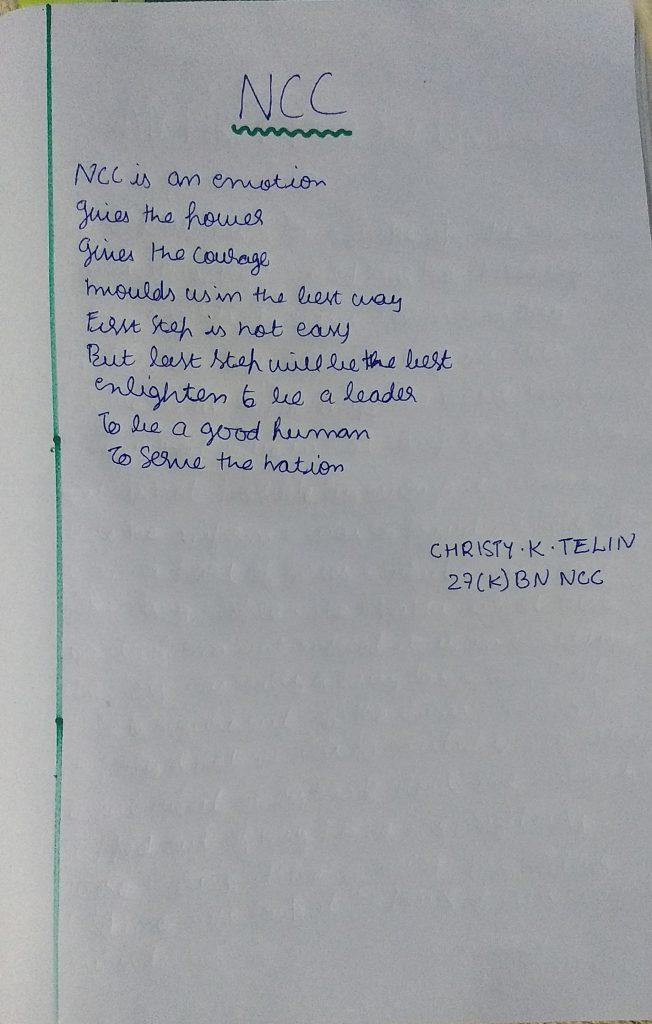 NCC
NCC is an emotion
gives the power
Gives the courage
moulds us in the best way
First step is not easy
But last step will be the best
enlighten to be a leader
To be a good human
To serve the nation
CHRISTY.K.TELIN
27(K)BN NCC